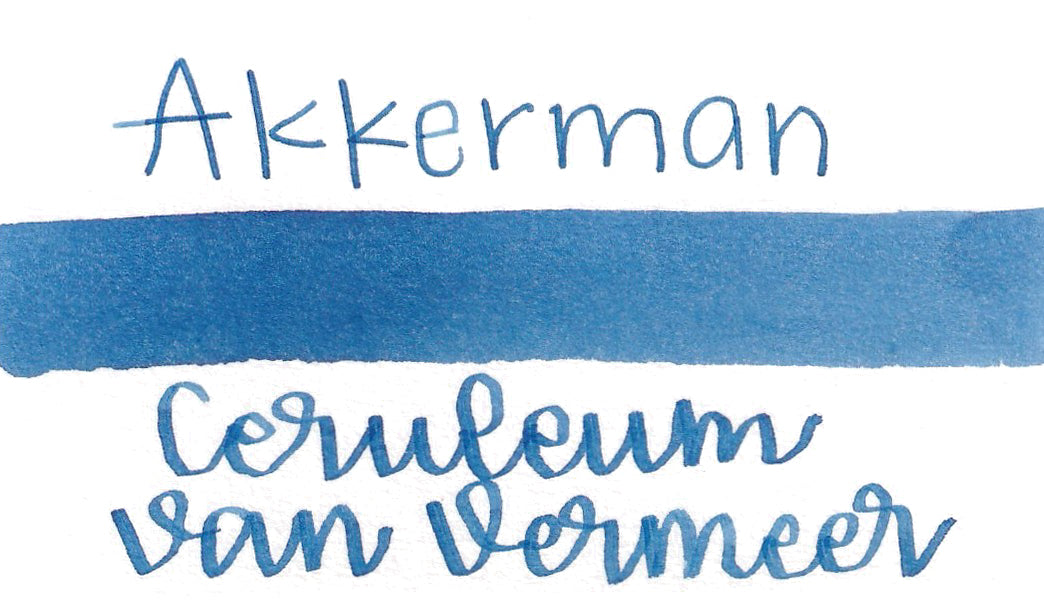 Akkerman
Ceruleum
van Vermeer